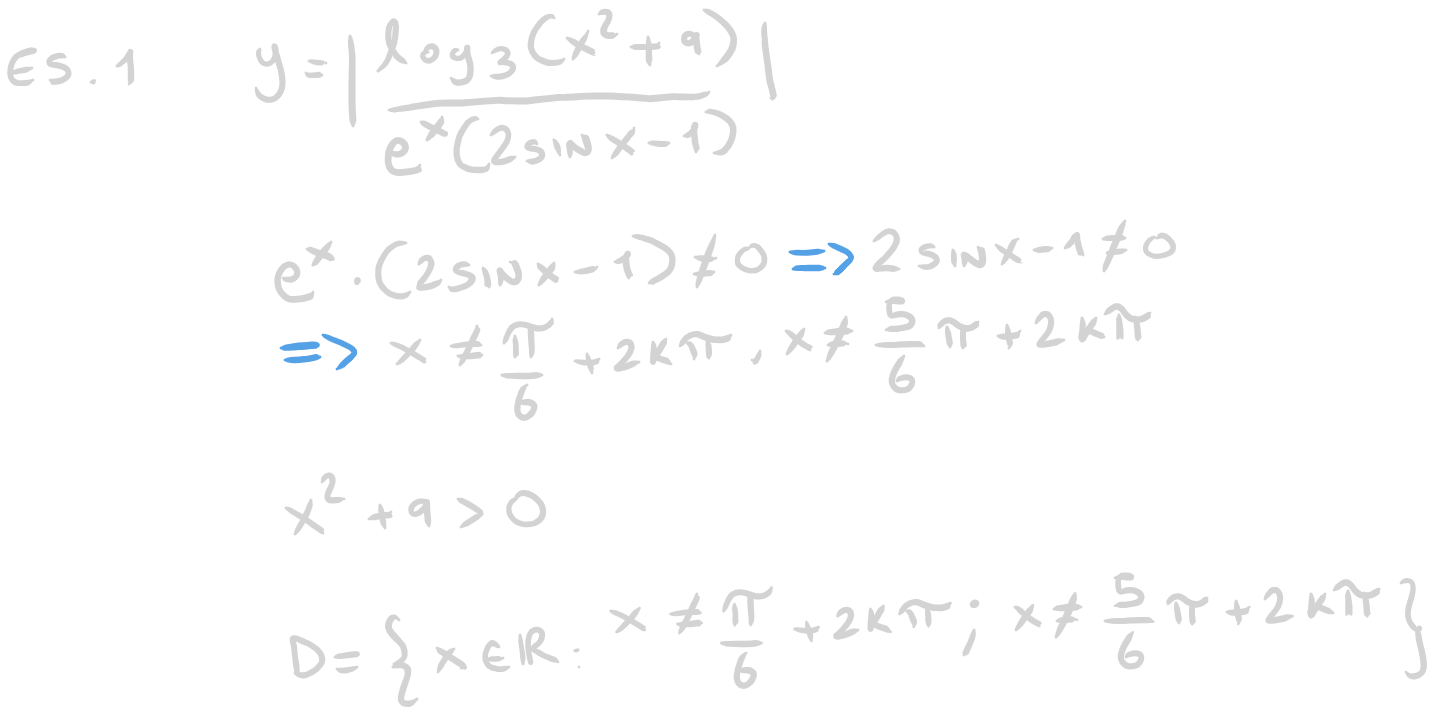 ES. 1 y = | log₃(x² + 9) / eˣ(2 sin x − 1) |
eˣ · (2 sin x − 1) ≠ 0 => 2 sin x − 1 ≠ 0
=> x ≠ π/6 + 2kπ, x ≠ 5/6 π + 2kπ
x² + 9 > 0
D = { x ∈ ℝ : x ≠ π/6 + 2kπ ; x ≠ 5/6 π + 2kπ }